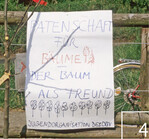 PATENSCHAFT
FÜR
BÄUME
DER BAUM
ALS FREUND
4